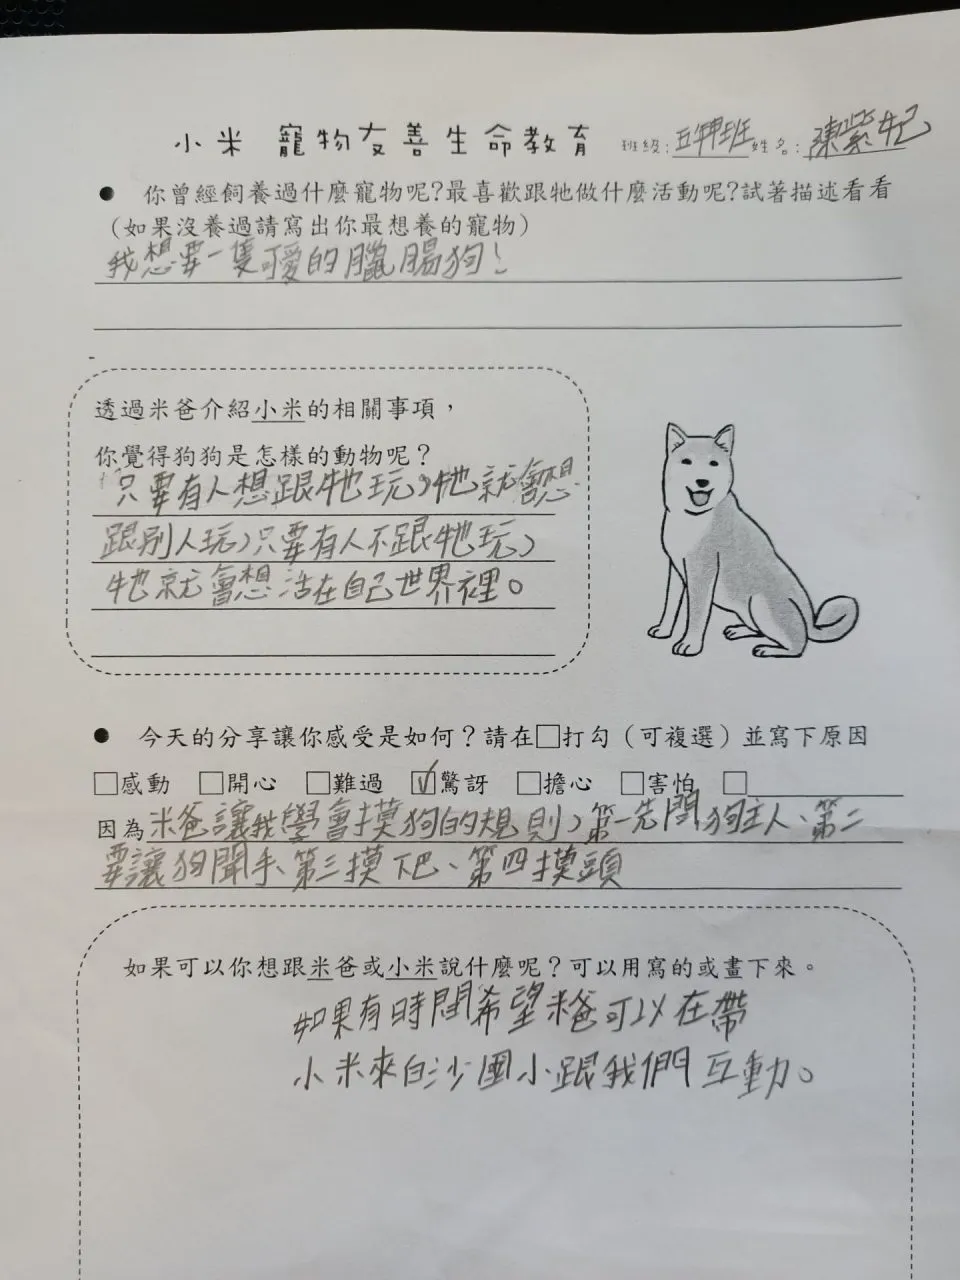 小米 寵物友善生命教育 班級:五年甲班 姓名:陳紫妃
● 你曾經飼養過什麼寵物呢?最喜歡跟牠做什麼活動呢?試著描述看看
(如果沒養過請寫出你最想養的寵物)
我想要一隻可愛的臘腸狗!
透過米爸介紹小米的相關事項,
你覺得狗狗是怎樣的動物呢?
只要有人想跟牠玩,牠就會想
跟別人玩,只要有人不跟牠玩,
牠就會想活在自己世界裡。
● 今天的分享讓你感受是如何?請在□打勾(可複選)並寫下原因
□感動 □開心 □難過 ☑驚訝 □擔心 □害怕 □
因為米爸讓我學會摸狗的規則,第一先問狗主人、第二
要讓狗聞手、第三摸下巴、第四摸頭
如果可以你想跟米爸或小米說什麼呢?可以用寫的或畫下來。
如果有時間希望米爸可以在帶
小米來白沙國小跟我們互動。